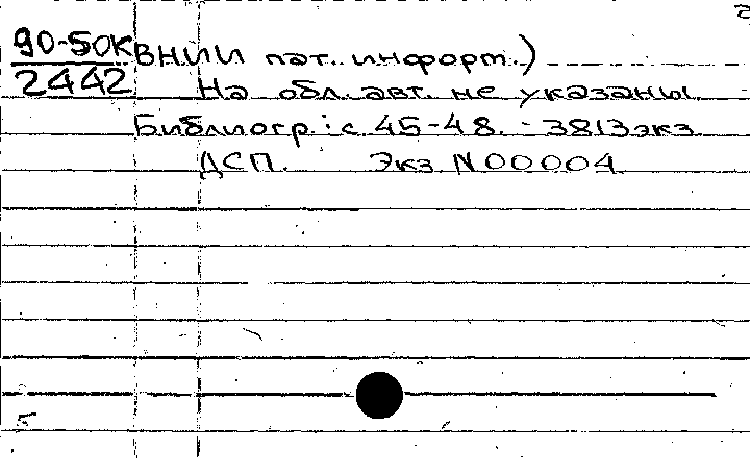 90-50К ВНИИ пат. информ.)
2442 На обл. авт. не указаны
Библиогр.: с. 45-48. - 3813экз
ДСП. Экз N00004